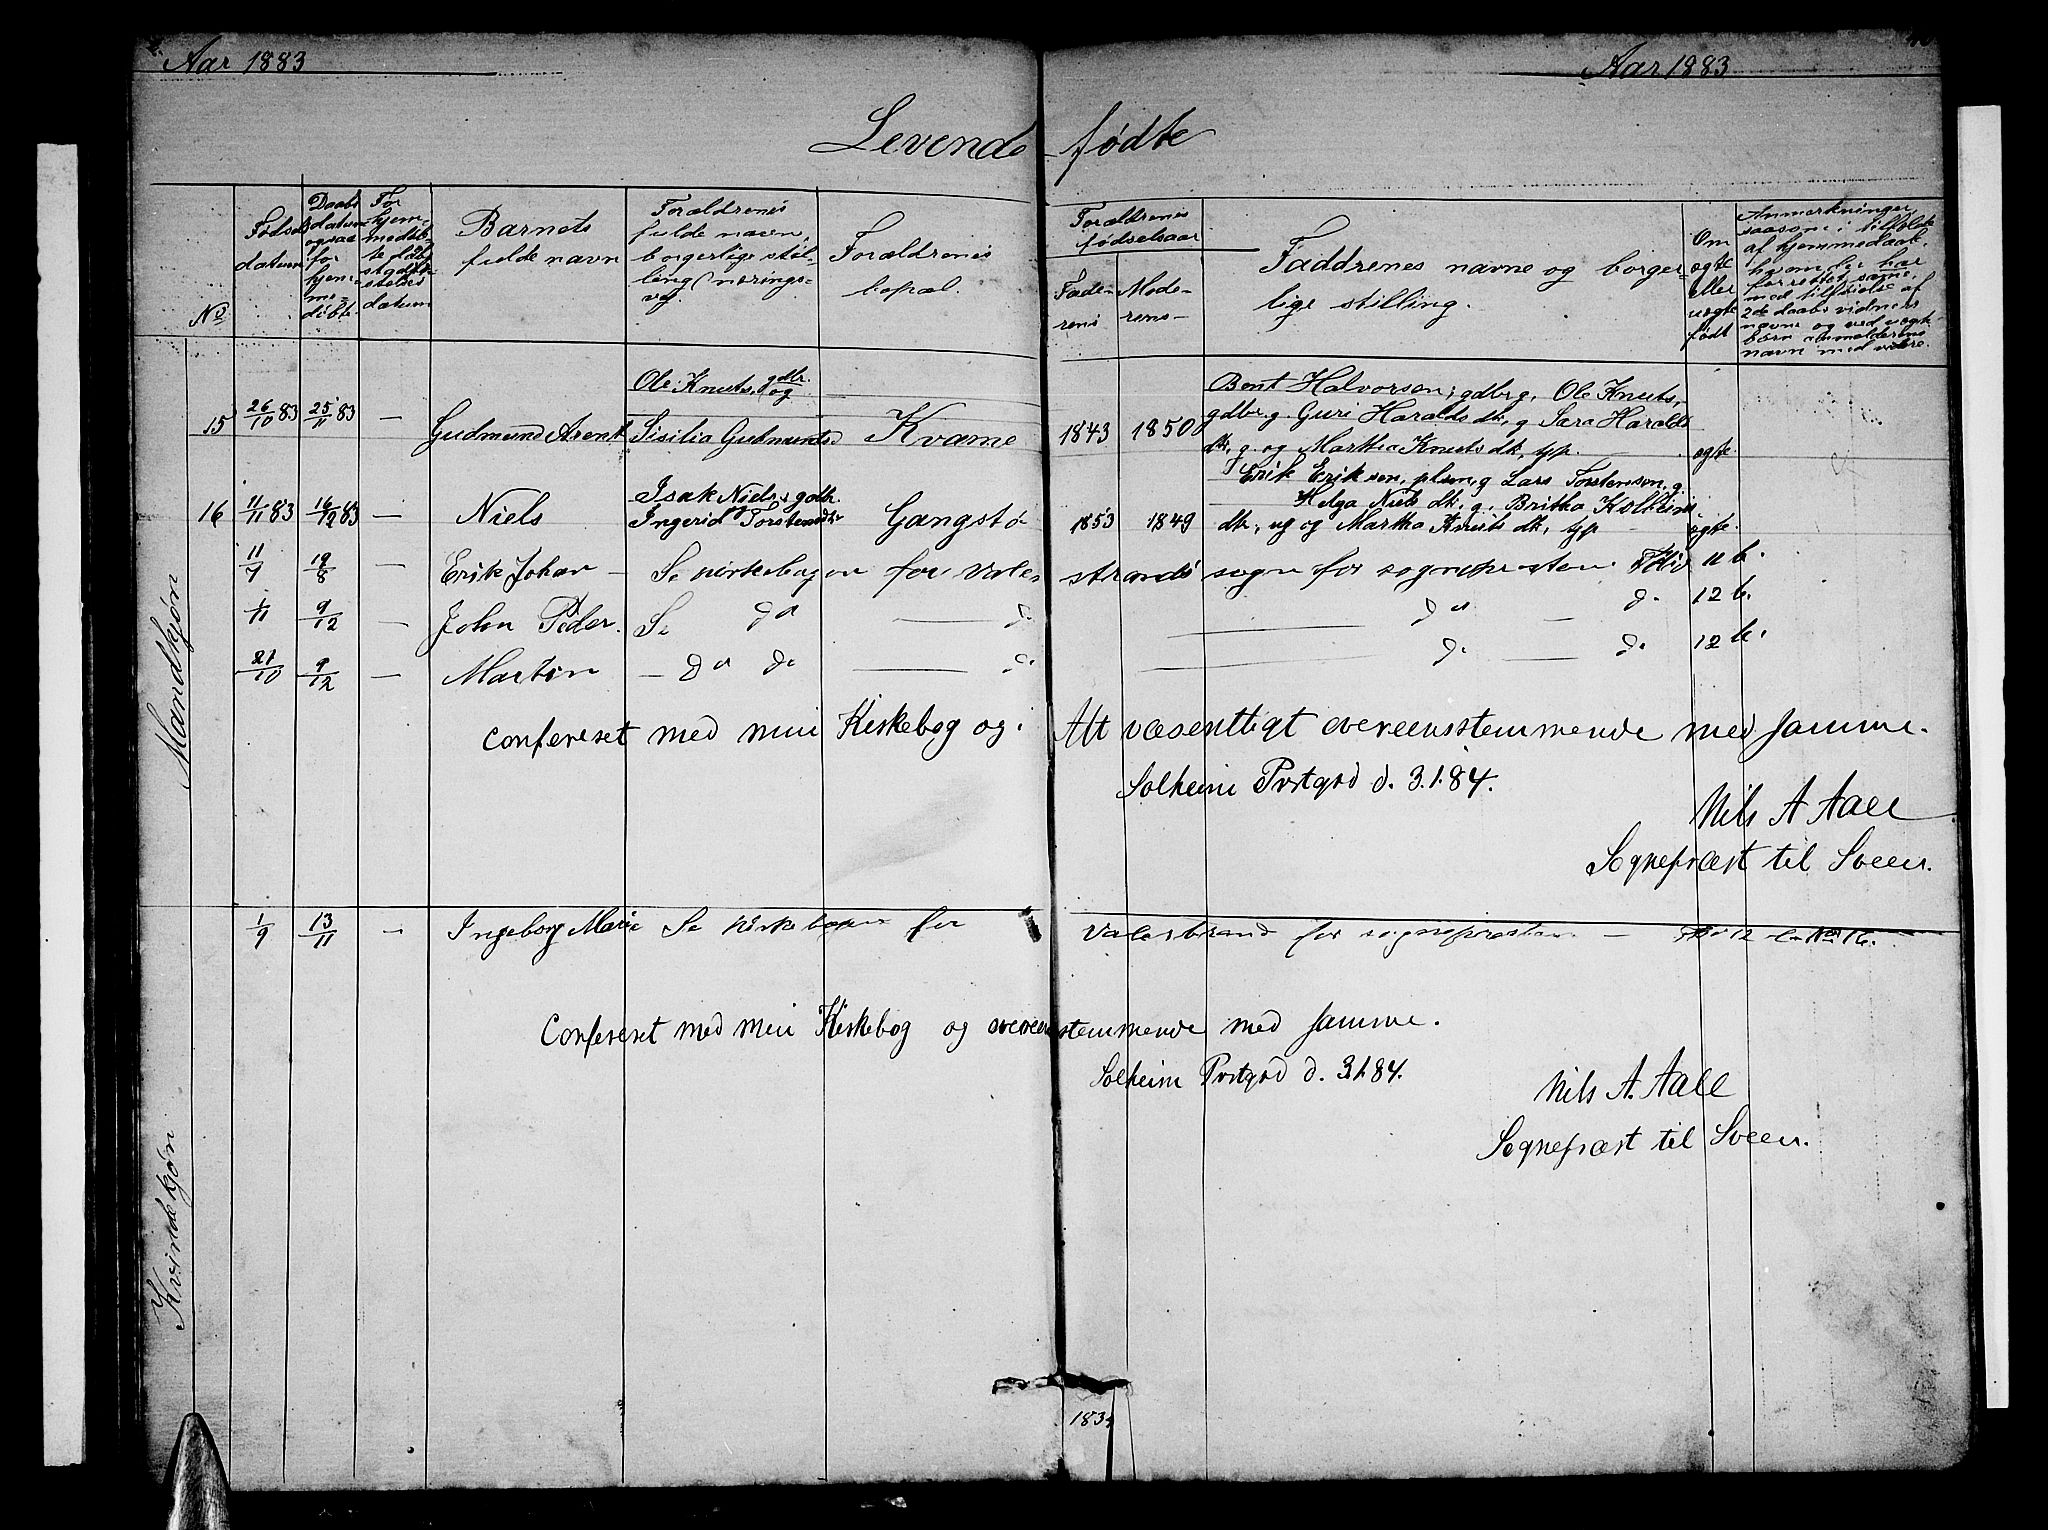 Aar 1883
Aar 1883
Levende fødte
No
Fødsels datum
Daabs datum ogsaa for hjemmedøbte
For hjemmedøbte stadfæstelses datum
Barnets fulde navn
Forældrenes fulde navn, borgerlige stilling (næringsvej
Forældrenes bopæl.
Forældrenes fødselsaar
Faderens
Moderens
Faddrenes navne og borgerlige stilling.
Om ægte eller uægte født
Anmerkninger saasom i tilfælde af hjemmedaab hvem der har forrettet samme, med tilføielse af 2de daabsvidners navne og ved uægte børn anmelderens navn med videre.
Mandkjøn
15 26/10 83 25/11 83 — Gudmund Arent Ole Knuts. gdbr. og Sisilia Gudmunds d Kvame 1843 1850 Bent Halvorsen, gdbr g. Ole Knuts, gdbr. g. Guri Haralds dtr, g Sara Haralds dtr, g. og Martha Knuts dtr, tjp. ægte.
16 11/11 83 16/12 83 — Niels Isak Niels. gdbr. og Ingerid Torstens dtr Gangstø 1853 1849 Erik Eriksen, pbm, g Lars Torstensen, g. Helga Niels dtr. g. Britha Kolbeins dtr, ug og Martha Knuts dtr, tjp — ægte.
11/7 19/8 — Erik Johan — Se kirkebogen for Valestrands sogn for sognepresten 11 b.
1/11 9/12 — John Peder. Se do — d. do d. 12 b.
21/10 9/12 — Martin — do do — d. d. — d. 12 b.
Confereret med min Kirkebog og i Alt væsentligt overeensstemmende med samme.
Solheim Pvstgrd d. 3.1.84.
Nils A Aall
Sognepræst til Sveen.
Kvindekjøn
1/9 13/11 — Ingeborg Marie Se kirkebogen for Valestrand for sognepresten — 12 No 16.
Confereret med min Kirkebog og overeensstemmende med samme.
Solheim Pvstgrd d. 3.1.84.
Nils A. Aall
Sognepræst til Sveen.